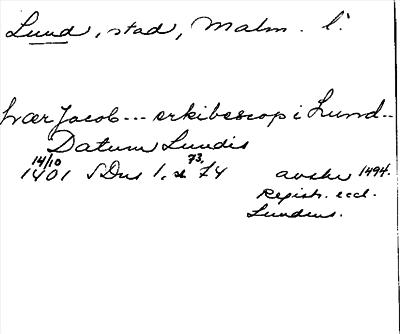 Lund, stad, Malm. l.
hwær Jacob--- erkibescop i Lund--
Datum Lundis
14/10 73,
1401 SDns 1, s 74 avskr 1494.
Registr. eccl.
Lundens.